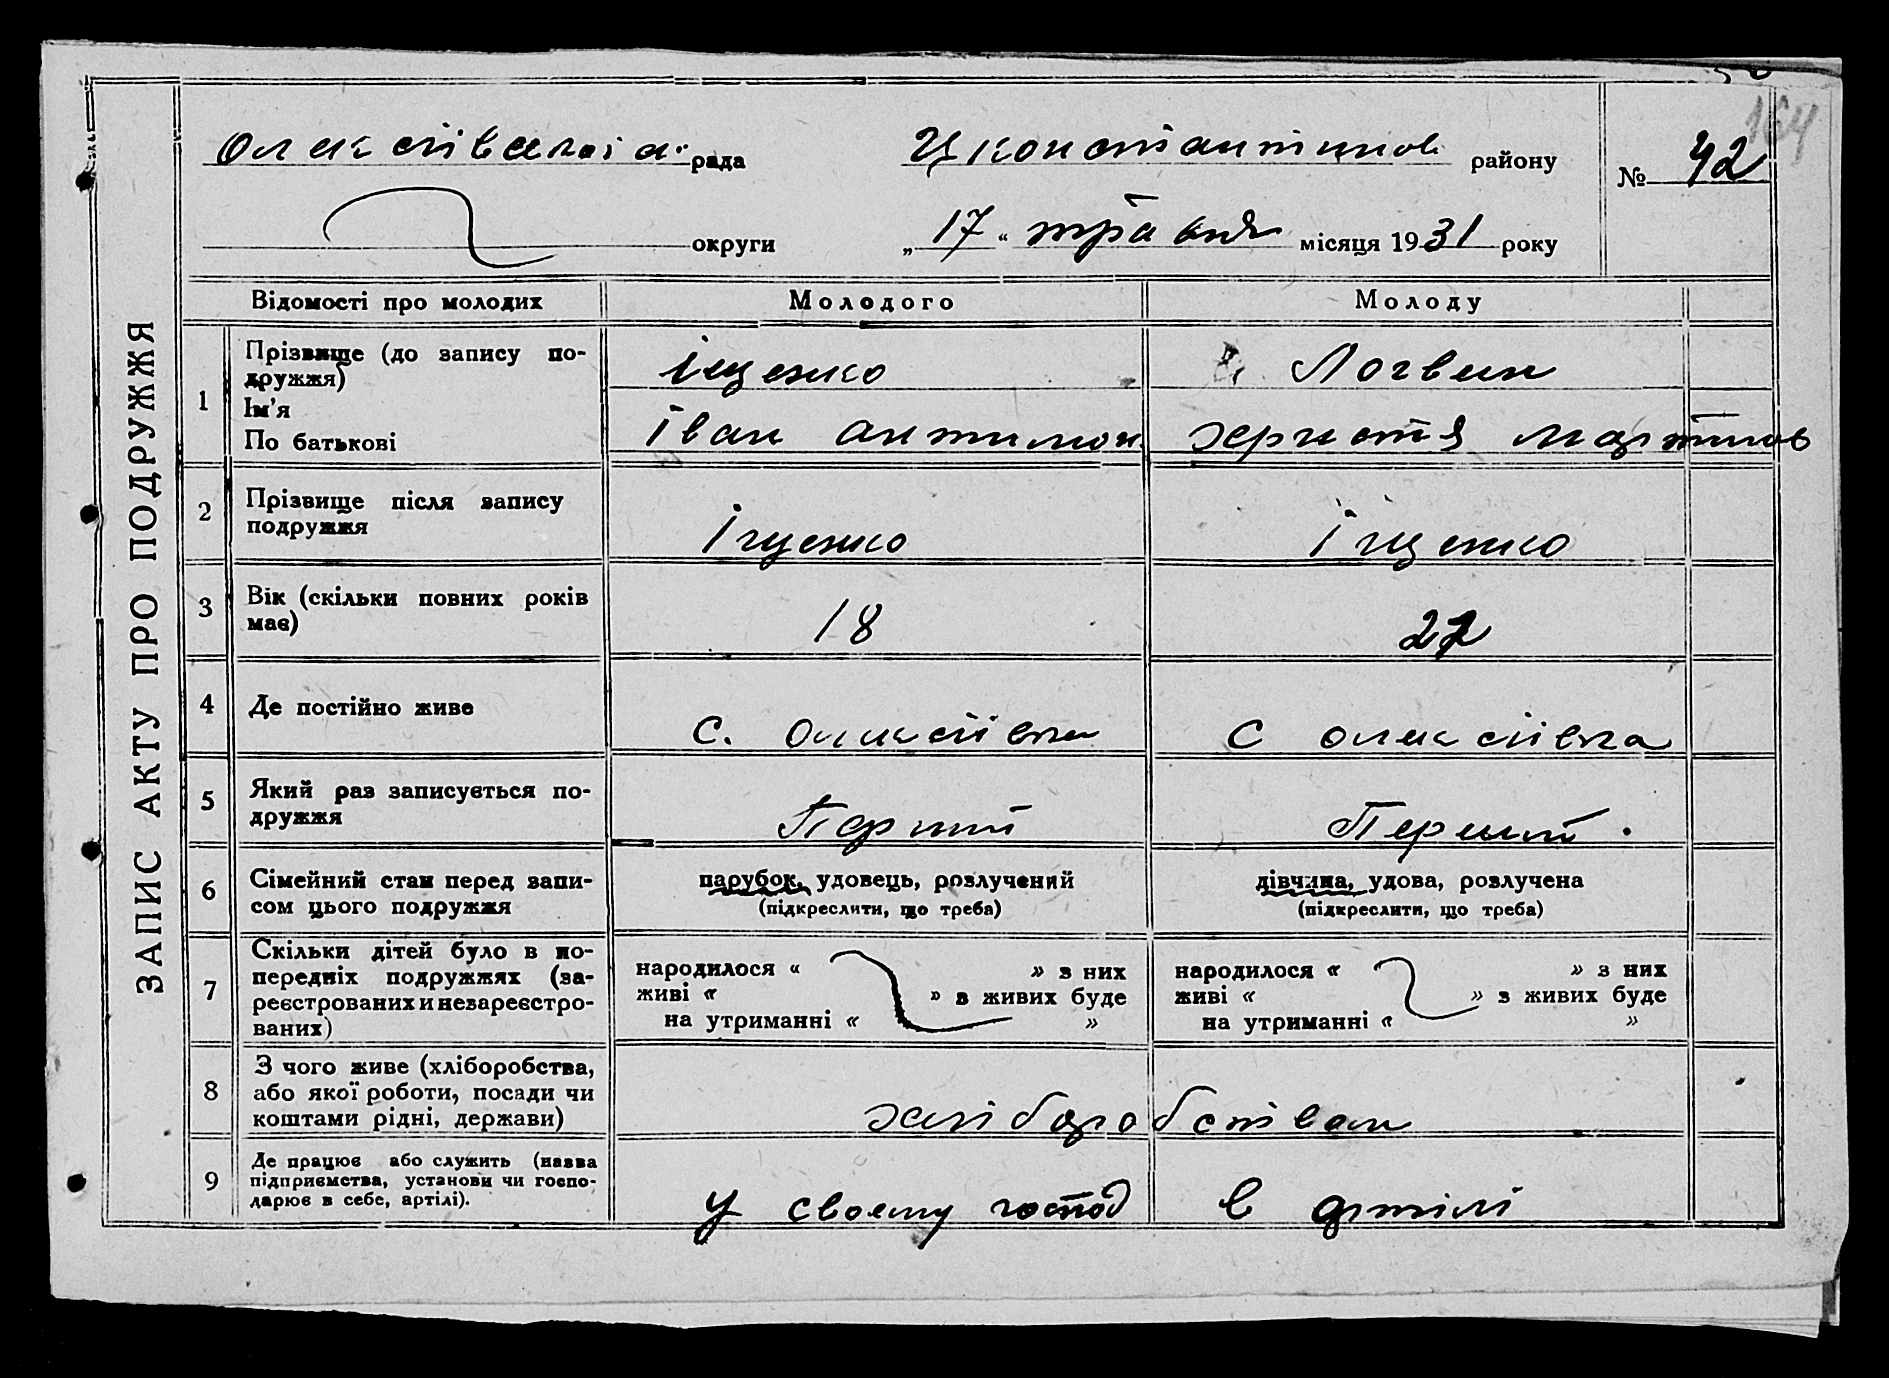 164
Олексіївська рада
Цконстантинов району
№ 42
округи
„17“ травня місяця 1931 року
ЗАПИС АКТУ ПРО ПОДРУЖЖЯ
Відомості про молодих
Молодого
Молоду
1
Прізвище (до запису по-
дружжя)
Ім'я
По батькові
Іщенко
Іван антимон
Логвин
херистя мартинов
2
Прізвище після запису
подружжя
Іщенко
Іщенко
3
Вік (скільки повних років
має)
18
4
Де постійно живе
С. Олексіївка
С олексіївка
5
Який раз записується по-
дружжя
Перший
Перший.
6
Сімейний стан перед запи-
сом цього подружжя
парубок, удовець, розлучений
(підкреслити, що треба)
дівчина, удова, розлучена
(підкреслити, що треба)
7
Скільки дітей було в по-
передніх подружжях (за-
реєстрованих и незареєстро-
ваних)
народилося « » з них
живі « » з живих буде
на утриманні « »
народилося « » з них
живі « » з живих буде
на утриманні « »
8
З чого живе (хліборобства,
або якої роботи, посади чи
коштами рідні, держави)
хліборобством
9
Де працює або служить (назва
підприємства, установи чи госпо-
дарює в себе, артілі).
у своєму господ
в артілі